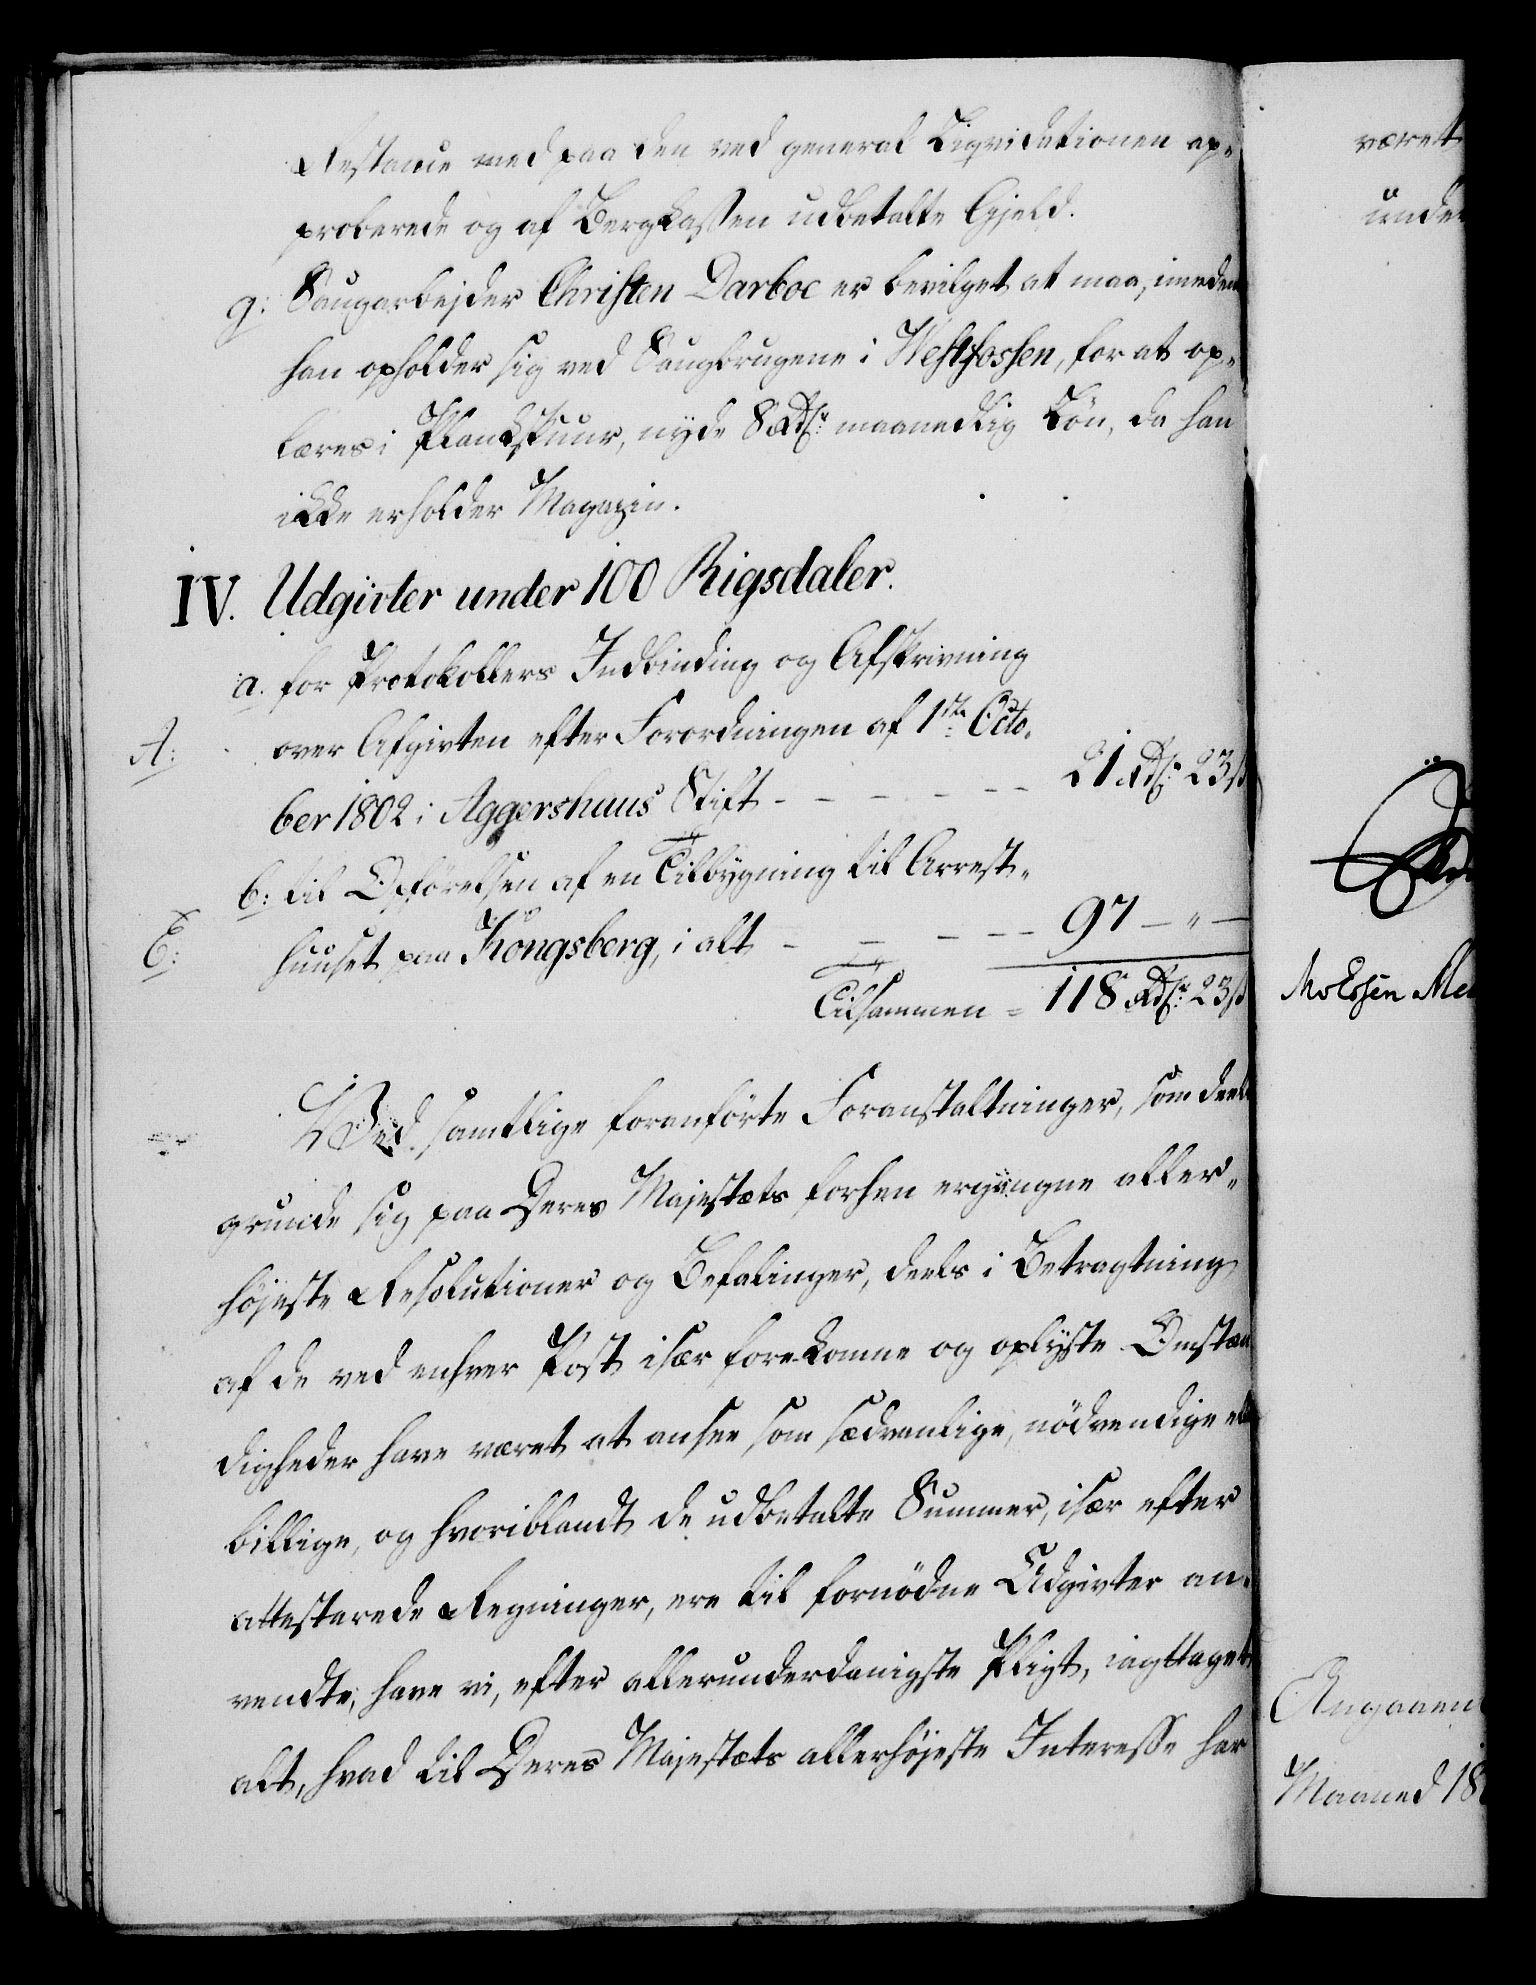 Restance ved paa den ved general Liqvidationen ap-
proberede og af Bergkassen udbetalte Gjeld.
g: Saugarbejder Christen Darboe er bevilget at maa, imedens
han opholder sig ved Saugbrugene i Westfossen, for at op-
læres i Plankskuur, nyde 8 Rdlr: maanedlig Løn, da han
ikke erholder Magazin.
IV. Udgivter under 100 Rigsdaler.
a. for Protokollers Indbinding og Afskrivning
A: over Afgivten efter Forordningen af 1ste Octo-
ber 1802 i Aggershuus Stift - - - - - - 21 Rdlr: 23 ß
b: til Opførelsen af en Tilbygning til Arrest-
E: huuset paa Kongsberg, i alt - - - - - 97 - " -
Tilsammen = 118 Rdlr: 23 ß
Ved samtlige foranførte Foranstaltninger, som deels
grunde sig paa Deres Majestæts forhen ergangne aller-
højeste Resolutioner og Befalinger, deels i Betragtning
af de ved enhver Post især forekomne og oplyste Omstæn
digheder have været at ansee som sædvanlige, nödvendige ell
billige, og hvoriblandt de udbetalte Summer, især efter
attesterede Regninger, ere til fornödne Udgivter an-
vendte, have vi, efter allerunderdanigste Pligt, iagttaget
alt, hvad til Deres Majestæts allerhøjeste Interesse har
været
under
Angaaen
Maaned 18